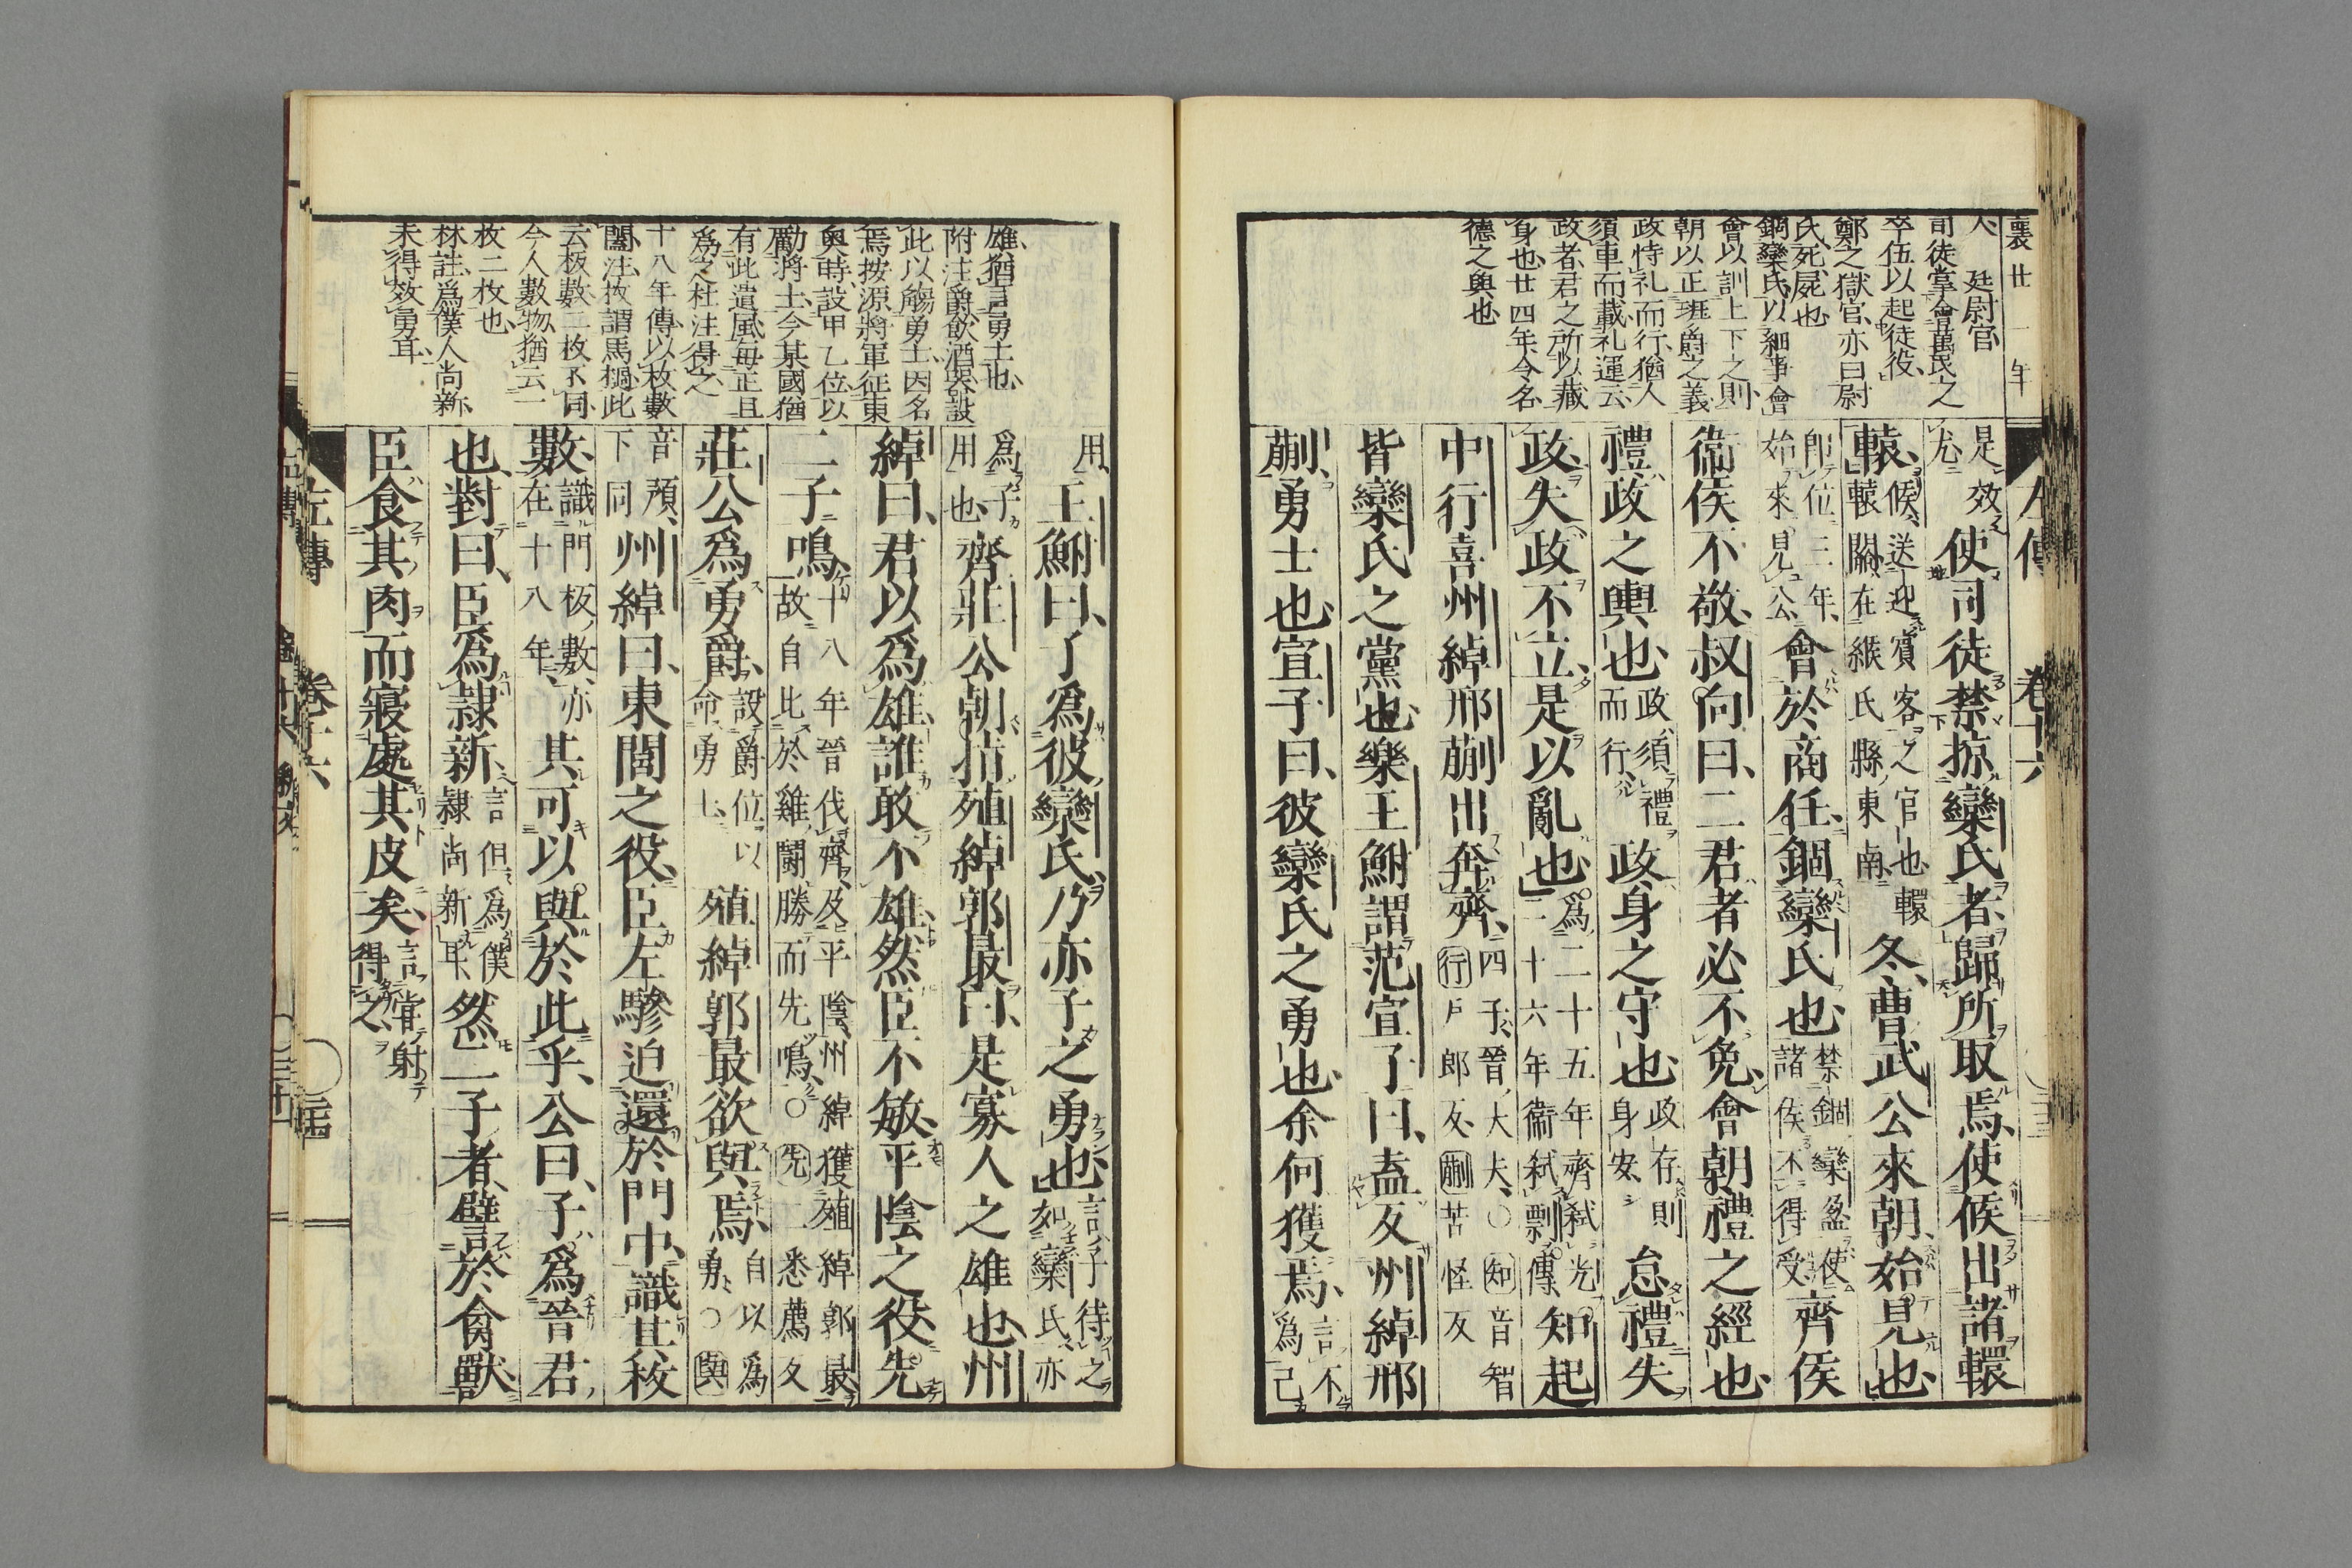 襄廿一年
人　廷尉官
司徒掌會萬民之
卒伍以起徒役
鄭之獄官亦曰尉
氏死屍也
錮欒氏以細事會
會以訓上下之則
朝以正班爵之義
政恃礼而行猶人
須車而載礼運云
政者君之所以藏
身也廿四年令名
德之輿也
左傳　卷十六
是效尤使司徒禁掠欒氏者歸所取焉使候出諸轘
轅候送迎賓客之官也轘轅關在緱氏縣東南冬曹武公來朝始見也
即位三年始來見公會於商任錮欒氏也禁錮欒盈使諸侯不得受齊侯
衞侯不敬叔向曰二君者必不免會朝禮之經也
禮政之輿也政須禮而行政身之守也政存則身安怠禮失
政失政不立是以亂也爲二十五年齊弑光二十六年衞弑剽傳知起
中行喜州綽邢蒯出奔齊四子晉大夫○知音智行戶郎反蒯苦怪反
皆欒氏之黨也樂王鮒謂范宣子曰盍反州綽邢
蒯勇士也宣子曰彼欒氏之勇也余何獲焉言不爲己
雄猶言勇士也
附注爵飲酒器設
此以觴勇士因名
焉按源將軍征東
奧時設甲乙位以
勵將士今某國猶
有此遺風毎正且
爲之杜注得之
十八年傳以枚數
闔注枚謂馬檛此
云板數二枚不同
今人數物猶云一
枚二枚也
林註爲僕人尚新
未得效勇耳
用王鮒曰子爲彼欒氏乃亦子之勇也言子待之如欒氏亦
爲子用也齊莊公朝指殖綽郭最曰是寡人之雄也州
綽曰君以爲雄誰敢不雄然臣不敏平陰之役先
二子鳴十八年晉伐齊及平陰州綽獲殖綽郭最故自比於雞鬪勝而先鳴○先二悉薦反
莊公爲勇爵設爵位以命勇士殖綽郭最欲與焉自以爲勇○與
音預下同州綽曰東閭之役臣左驂迫還於門中識其枚
數識門板數亦在十八年其可以與於此乎公曰子爲晉君
也對曰臣爲隸新言但爲僕隸尚新耳然二子者譬於禽獸
臣食其肉而寢處其皮矣言嘗射得之
左傳　卷十六